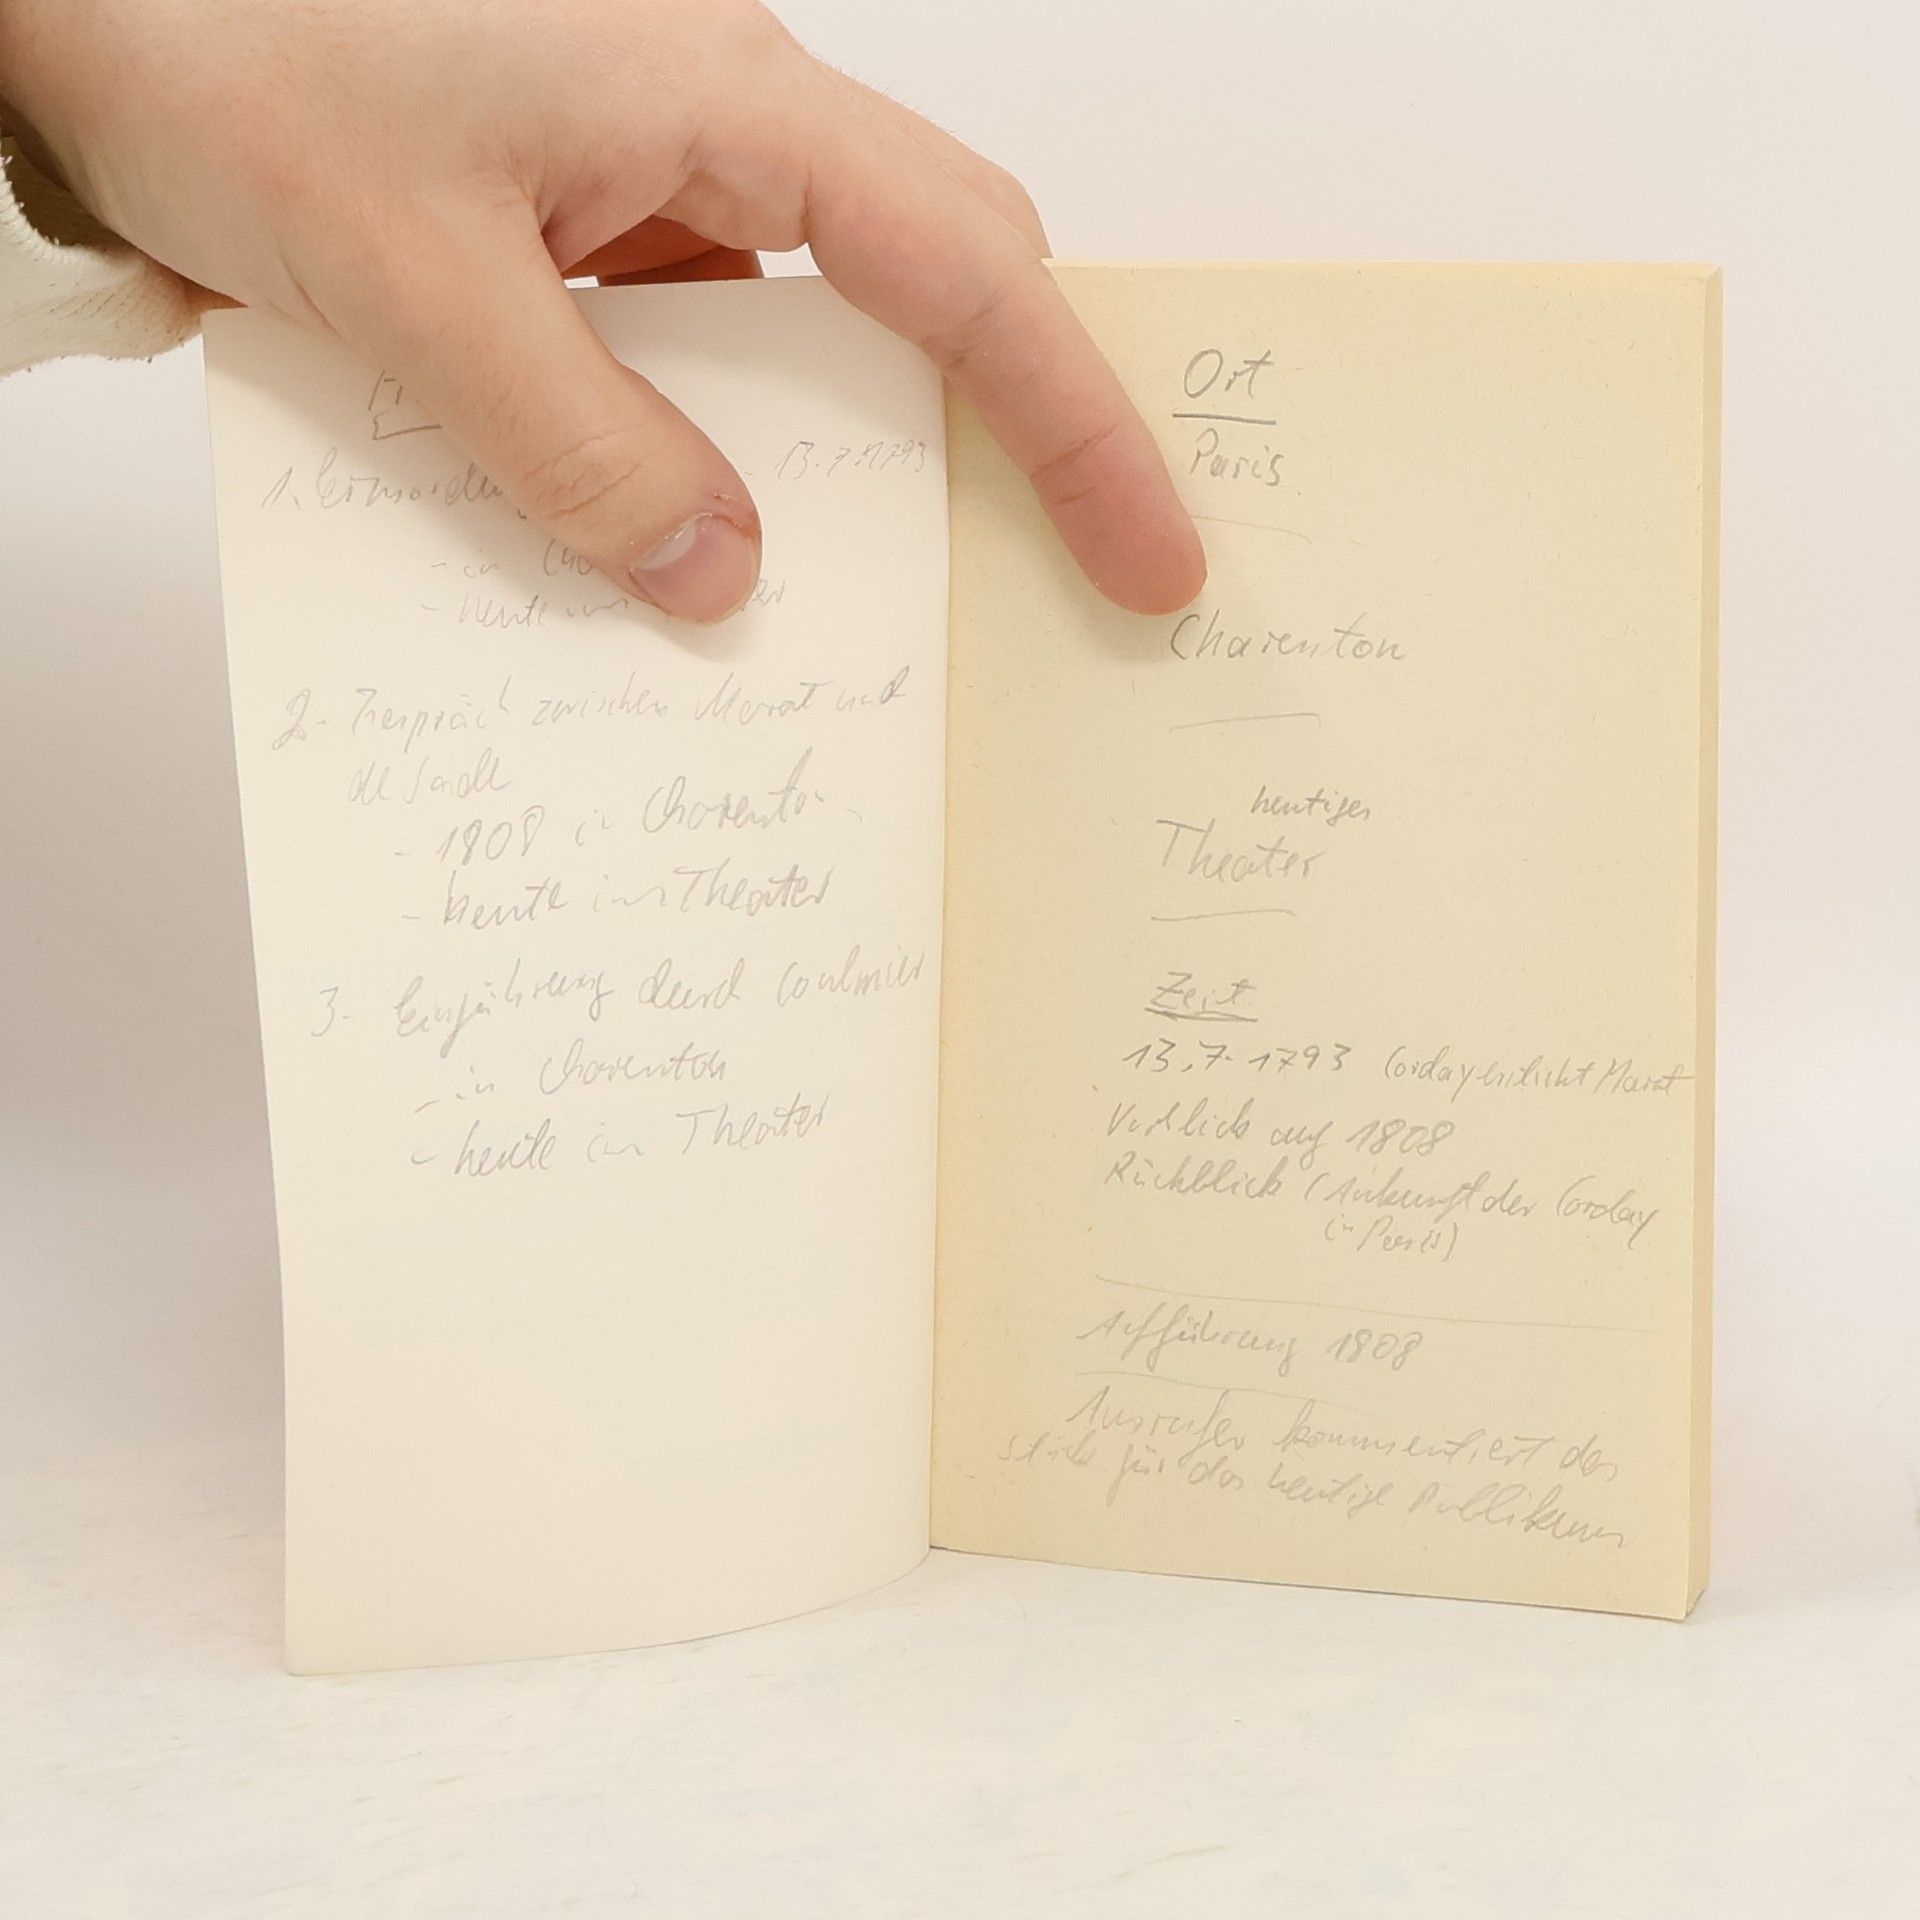 1. Ermordung - 13.7.1793
- in
- heute im
2. Gespräch zwischen Marat und
de Sade
- 1808 in Charenton
- heute im Theater
3. Einführung durch Coulmier
- in Charenton
- heute im Theater
Ort
Paris
Charenton
heutiges
Theater
Zeit
13.7.1793 Corday ersticht Marat
Vorblick auf 1808
Rückblick (Ankunft der Corday
in Paris)
Aufführung 1808
Ausrufer kommentiert das
Stück für das heutige Publikum